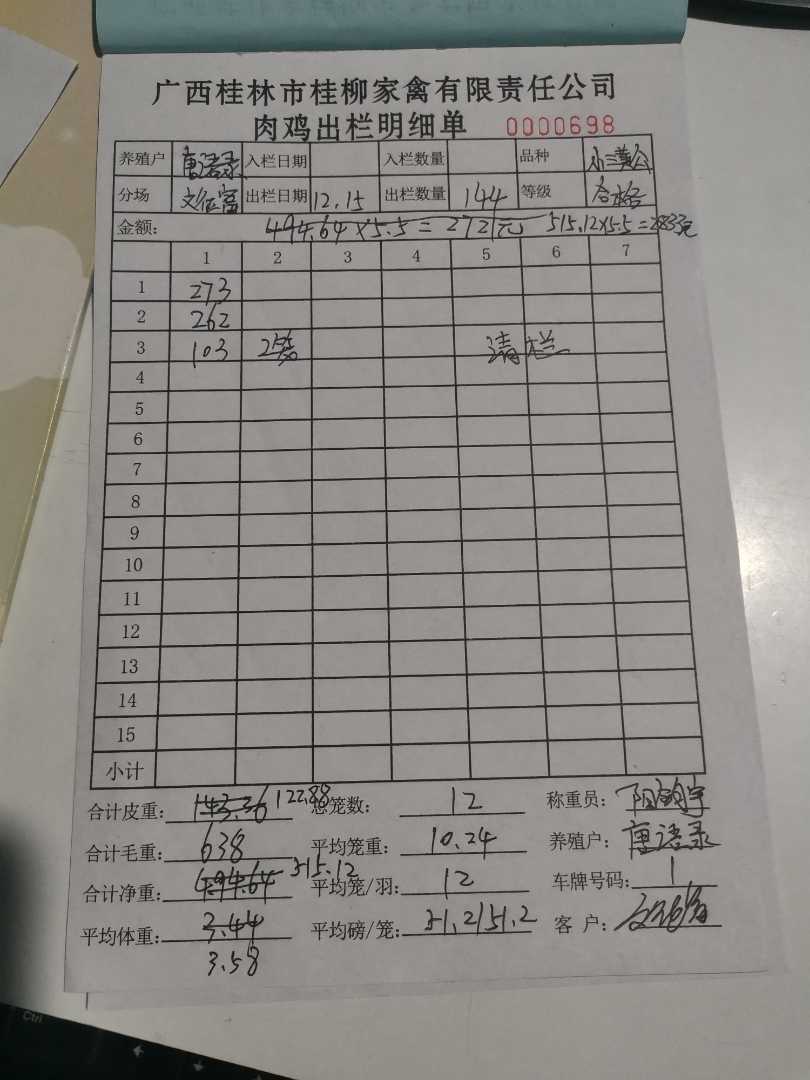 广西桂林市桂柳家禽有限责任公司
肉鸡出栏明细单 0000698
养殖户 唐语录 入栏日期 入栏数量 品种 小三黄公
分场 出栏日期 12.15 出栏数量 144 等级 合格
金额: 494.64×5.5=2721元 515.12×5.5=2833元
1 2 3 4 5 6 7
1 273
2 262
3 103 2 清栏
4
5
6
7
8
9
10
11
12
13
14
15
小计
合计皮重: 143.36 122.88 总笼数: 12 称重员:
合计毛重: 638 平均笼重: 10.24 养殖户: 唐语录
合计净重: 494.64 515.12 平均笼/羽: 12 车牌号码: 1
平均体重: 3.44 平均磅/笼: 51.2/51.2 客 户:
3.58
Ctrl